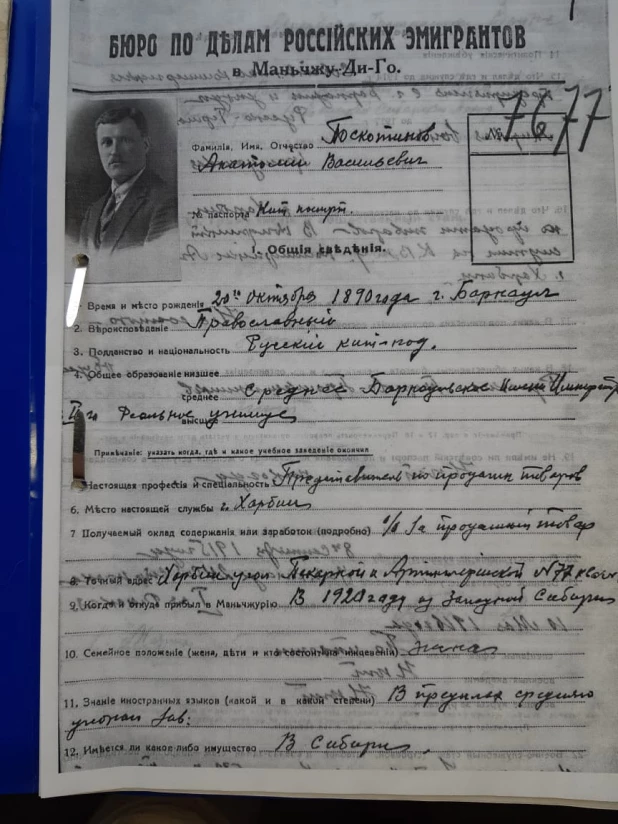 БЮРО ПО ДѢЛАМ РОССІЙСКИХ ЭМИГРАНТОВ
в Маньчжу-Ди-Го.
7677
Фамилія, Имя, Отчество Поскотинов
Анатолий Васильевич
№ паспорта Кит. паспорт.
I. Общія свѣдѣнія.
1. Время и мѣсто рожденія 20го октября 1890 года г. Барнаул
2. Вѣроисповѣданіе Православный
3. Подданство и національность Русскій кит-под.
4. Общее образованіе низшее
среднее Среднее Барнаульское Имени Императ
II го Реальное училище
высшее
Примѣчаніе: указать когда, гдѣ и какое учебное заведеніе окончил
Настоящая профессія и спеціальность Представитель по продаже товаров
6. Мѣсто настоящей службы г. Харбин
7 Получаемый оклад содержанія или заработок (подробно) % За проданный товар
8. Точный адрес Харбин угол Пекарной и Артиллерійской № 77
9. Когда и откуда прибыл в Маньчжурію В 1920 году из Западной Сибири
10. Семейное положеніе (жена, дѣти и кто состоит на иждивеніи) Жена
11. Знаніе иностранных языков (какой и в какой степени) В пределах среднего
учебнаго зав:
12. Имѣется ли какое-либо имущество В Сибири.